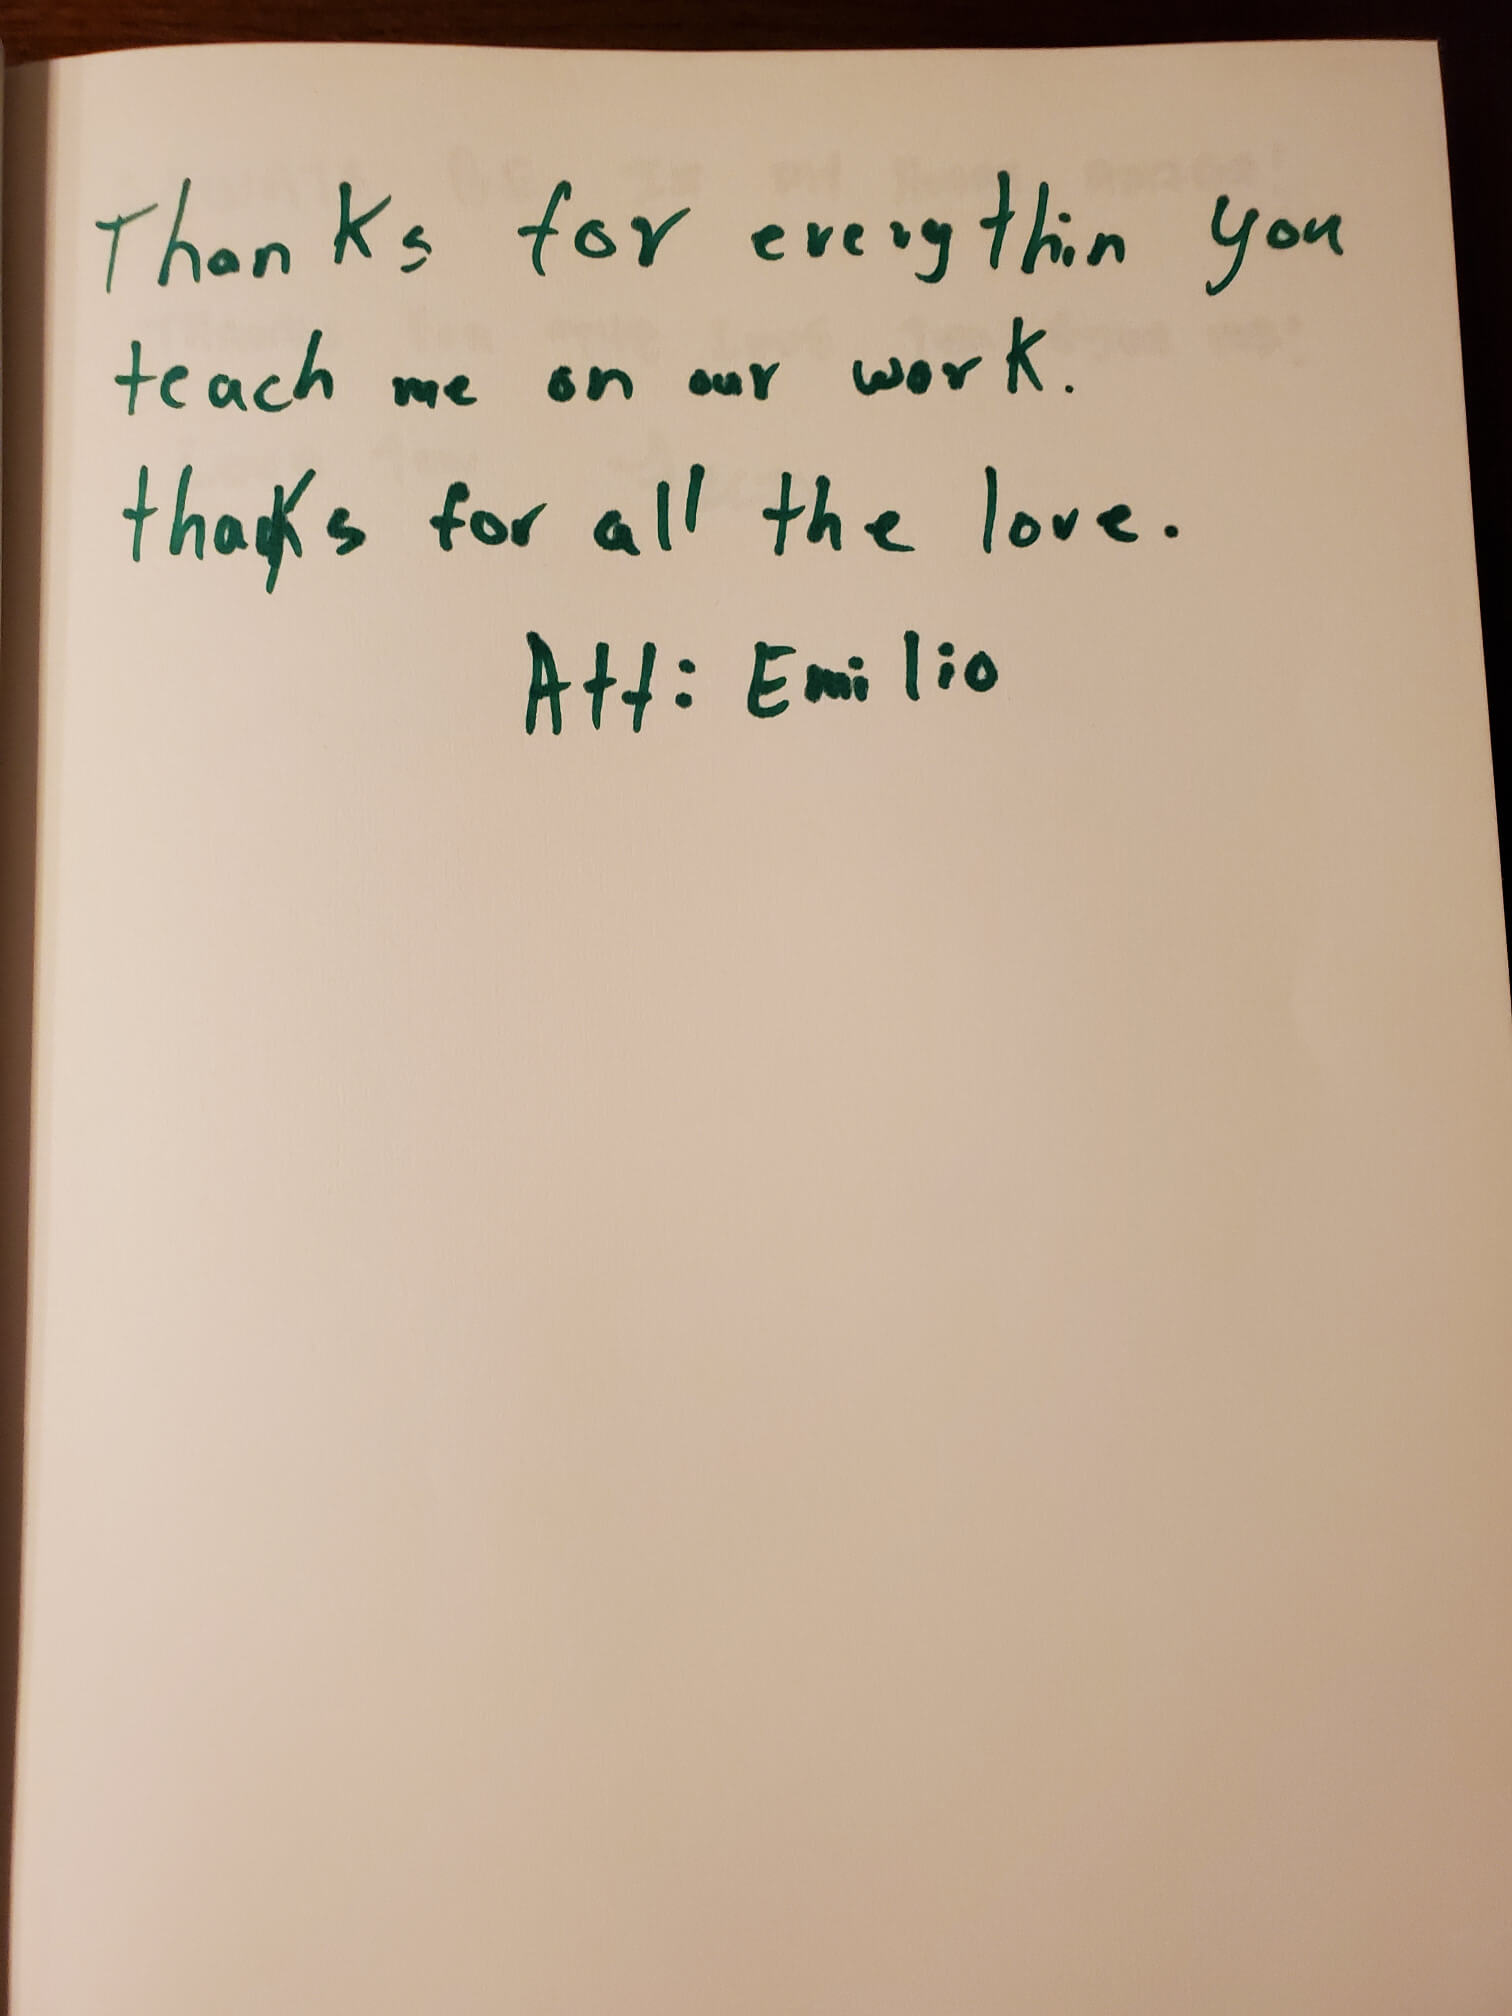 Thanks for everythin you
teach me on our work.
thanks for all the love.
Att: Emilio